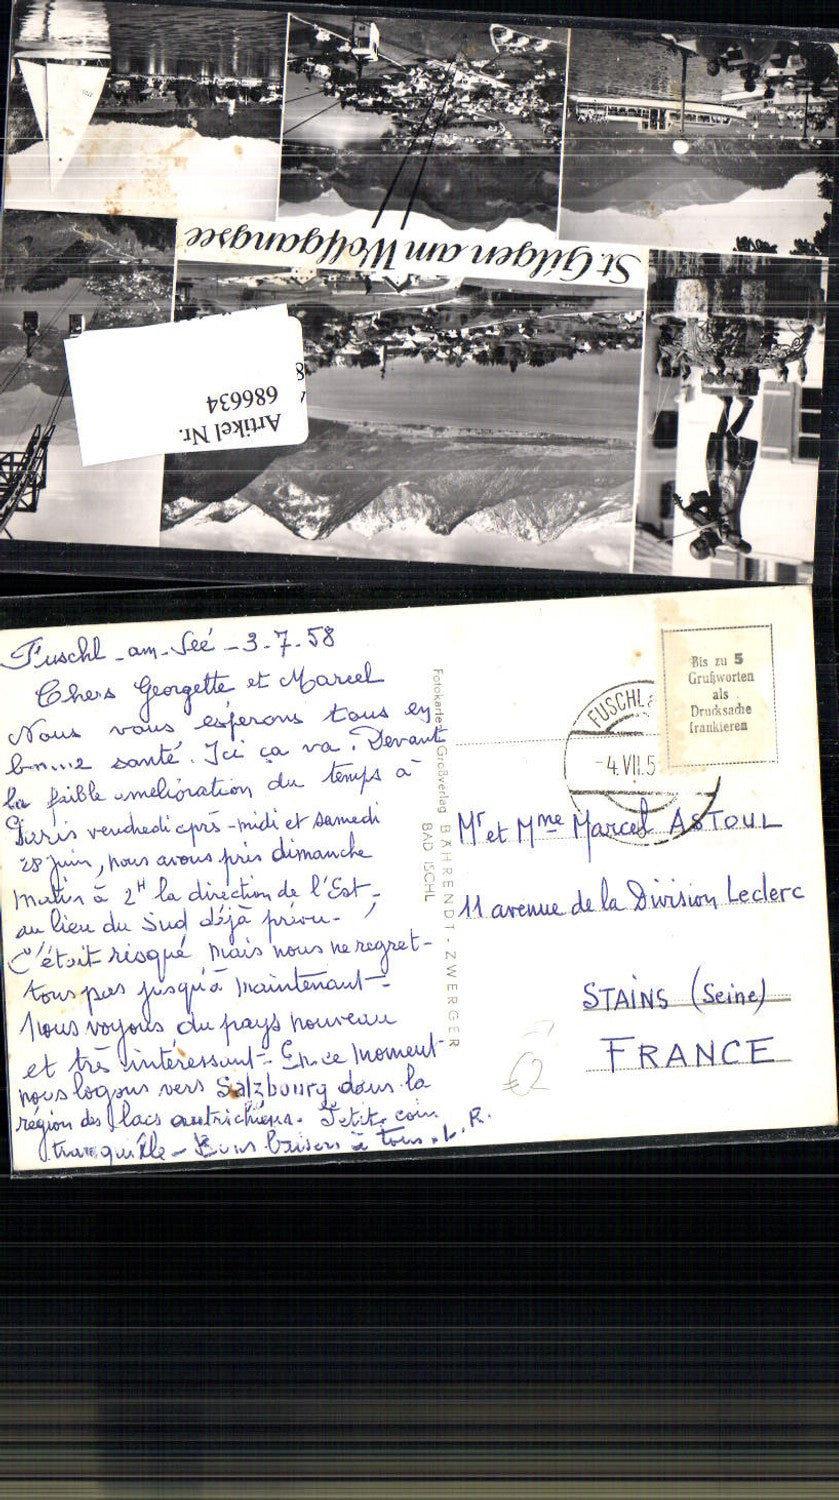 St. Gilgen am Wolfgangsee
Artikel Nr.
686634
Fuschl-am-Seé - 3-7-58
Chers Georgette et Marcel
Nous vous esperons tous en
bonne santé. Ici ça va. Devant
la faible amelioration du temps à
Paris vendredi après-midi et samedi
28 juin, nous avons pris dimanche
matin à 2H la direction de l'Est-
au lieu du Sud déjà prévu-
C'était risqué mais nous ne regret-
tons pas jusqu'à maintenant-
Nous voyons du pays nouveau
et très intéressant- En ce moment
nous logons vers Salzbourg dans la
région des lacs autrichiens. Petit coin
tranquille- Bons baisers à tous. L.R.
Fotokarten Großverlag BÄHRENDT - ZWERGER
BAD ISCHL
FUSCHL
-4.VII.5
Bis zu 5
Grußworten
als
Drucksache
frankieren
Mr et Mme Marcel ASTOUL
11 avenue de la Division Leclerc
STAINS (Seine)
FRANCE
€2